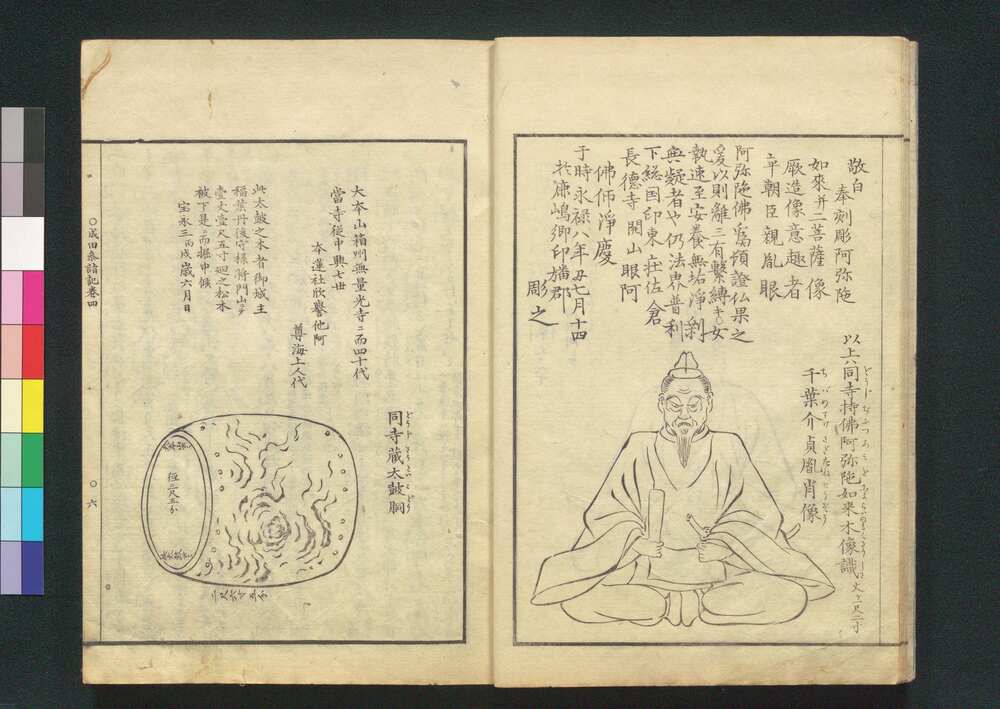 敬白
奉刻彫阿弥陁
如來并二菩薩像
厥造像意趣者
平朝臣親胤眼
阿弥陁佛為頓證仏果之
爰以則離三有繋縛
執速至安養無垢淨刹
無疑者也仍法界普利
下総国印東庄佐倉
長徳寺開山眼阿
佛師淨慶
于時永禄八年丑七月十四
於鹿嶋郷印旛郡
彫之
以上同寺持佛阿弥陁如来木像識
千葉介貞胤肖像
同寺蔵太鼓胴
大本山相州無量光寺ニ而四十代
當寺従中興七世
本蓮社欣誉他阿
尊海上人代
此太鼓之木者御城主
稲葉丹後守様将門山ゟ
壹丈壹尺五寸廻之松木
被下是ニ而堀申候
宝永三丙戌歳六月日
径二尺五分
二尺六寸五分
○成田参詣記巻四
○六